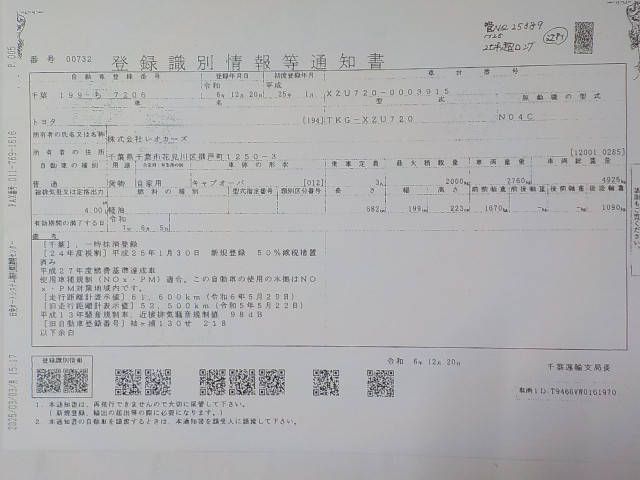 管No.25389
番号 00732 登録識別情報等通知書
自動車登録番号 登録年月日 初度登録年月 車台番号
千葉 199 ち 7206 令和 6年12月20日 平成 25年 1月 XZU720-0003915
車名 型式 原動機の型式
トヨタ [194] TKG-XZU720 N04C
所有者の氏名又は名称 株式会社レオカーズ
所有者の住所 千葉県千葉市花見川区横戸町1250-3 [12001 0285]
自動車の種別 用途 自家用・事業用の別 車体の形状 乗車定員 最大積載量 車両重量 車両総重量
普通 貨物 自家用 キャブオーバ [012] 3人 2000kg 2760kg 4925kg
総排気量又は定格出力 燃料の種類 型式指定番号 類別区分番号 長さ 幅 高さ 前前軸重 前後軸重 後前軸重 後後軸重
4.00 軽油 682cm 199cm 223cm 1670kg -kg -kg 1090kg
有効期間の満了する日 令和 7年 6月 5日
備考
[千葉],一時抹消登録
[24年度税制]平成25年1月30日 新規登録 50%減税措置
済み
平成27年度燃費基準達成車
使用車種規制(NOx・PM)適合,この自動車の使用の本拠はNO
x・PM対策地域内です。
[走行距離計表示値]61,600km(令和6年5月29日)
[旧走行距離計表示値]52,500km(令和5年5月22日)
平成13年騒音規制車,近接排気騒音規制値 98dB
[旧自動車登録番号]袖ヶ浦130せ 218
以下余白
登録識別情報
令和 6年12月20日
千葉運輸支局長
1.本通知書は,再発行できませんので大切に保管して下さい。
(新規登録,輸出の届出等の際に必要になります。)
2.本通知書の自動車を譲渡するときは,本通知書を譲受人に譲渡して下さい。
P.005
FAX番号:011-769-1616
2025/03/03/月 15:17